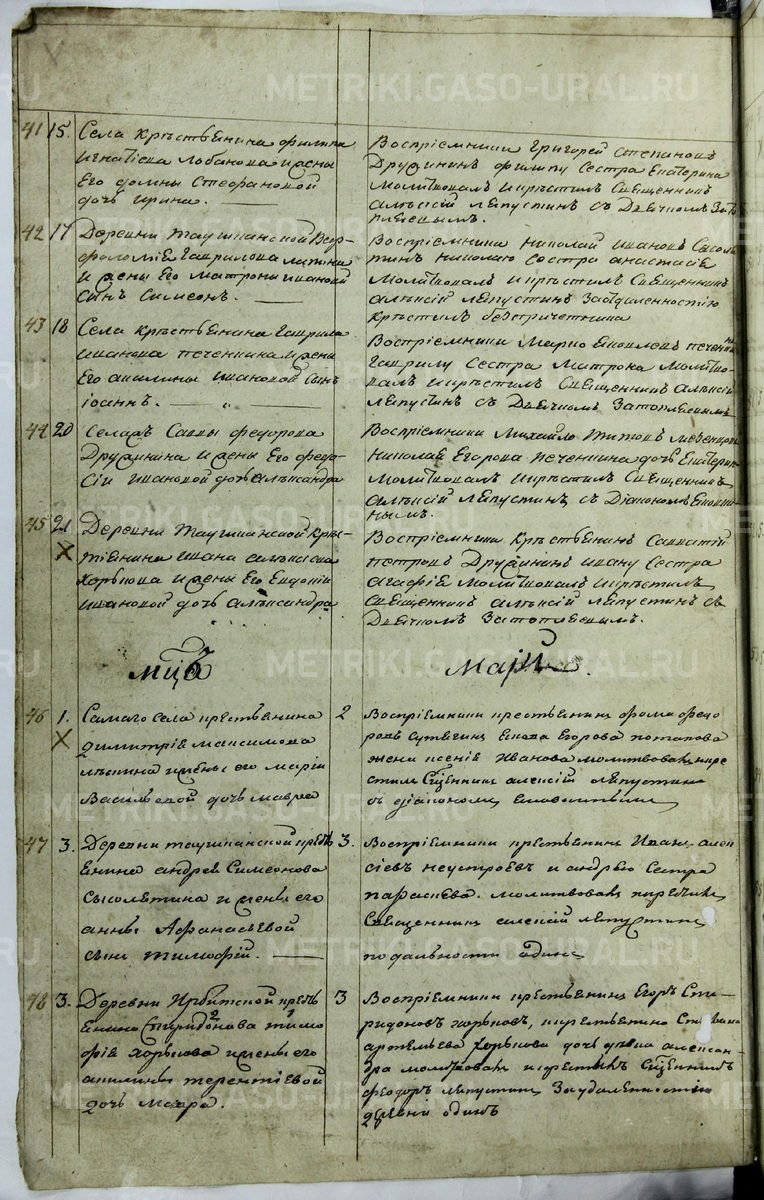 METRIKI.GASO-URAL.RU
41 15. Села Крѣстьянина Филипа
Игнатіева Лобанова и жены
Его Домны Стефановой
дочь Ирина.
Воспріемники Григорей Степановъ
Дружининъ Филипу Сестра Екатерина
Молитвовалъ и крѣстилъ Священникъ
Алѣксій Ляпустинъ съ Дьячкомъ Зато
пляевымъ.
42 17 Деревни Таушканской Вар-
фоломіе Гаврилова
и жены Его Матроны Ивановой
Сынъ Симеонъ.
Воспріемника Николай Ивановъ Сысоля
тинъ Николаю Сестра Анастасіе
Молитвовалъ и крѣстилъ Священникъ
Алѣксій Ляпустинъ за отдаленностію
Крѣстилъ безпричетника
43 18 Села Крѣстьянина Гаврила
Иванова Печенкина и жены
Его Акилины Ивановой Сынъ
Іоаннъ.
Воспріемники Марко Яковлевъ Печенки
Гаврилу Сестра Матрона Молитво-
валъ и крѣстилъ Священникъ Алѣксій
Ляпустинъ съ Дьячкомъ Затопляевымъ
44 20 Савы Федорова
Дружинина и жены Его Федо-
сіи Ивановой дочь Алѣксандра
Воспріемники Михайло Титовъ
Николая Егорова Печенкина дочь Екатерин
Молитвовалъ и крѣстилъ Священникъ
Алѣксій Ляпустинъ съ Діакономъ
45 21 Деревни Таушканской Крѣс-
тіянина Ивана Алѣксіева
Хорькова и жены Его Евдокіи
Ивановой дочь Алѣксандра
Воспріемника Крѣстьянинъ Савватій
Петровъ Дружининъ Ивану Сестра
Агафіе Молитвовалъ и крѣстилъ
Священникъ Алѣксій Ляпустинъ съ
Дьячкомъ Затопляевымъ.
Мцъ Мартъ.
46 1. Самаго села крестьянина
Димитріе Максимова
и жены его Маріи
Васильевой дочь Мавра
2 Воспріемники крестьянинъ Фома Федо
ровъ Якова Егорова Потапова
жена Ксеніе Иванова молитвовалъ и кре
стилъ Сщенникъ Алексій Ляпустинъ
съ діакономъ
47 3. Деревни Таушканской кресть
янина Андрея Симеонова
Сысолятина и жены его
Анны Афанасьевой
сынъ Тимофій.
3. Воспріемники крестьянинъ Иванъ Алек
сіевъ Неустроевъ и Андрею Сестра
Параскева. Молитвовалъ и крестилъ
Священникъ Алексій Ляпустинъ
по дальности одинъ
48 3. Деревни Ирбитской кресть
янина Спиридонова Тимо
фіе Хорькова и жены его
Акилины Терентіевой
дочь Мавра.
3 Воспріемники крестьянинъ Егоръ Спи-
ридоновъ Хорьковъ, и крестьянина
Артемьева Хорькова дочь девка Алексан
дра молитвовалъ и крестилъ Сщенникъ
Феодоръ Ляпустинъ За удаленностію
деревни одинъ